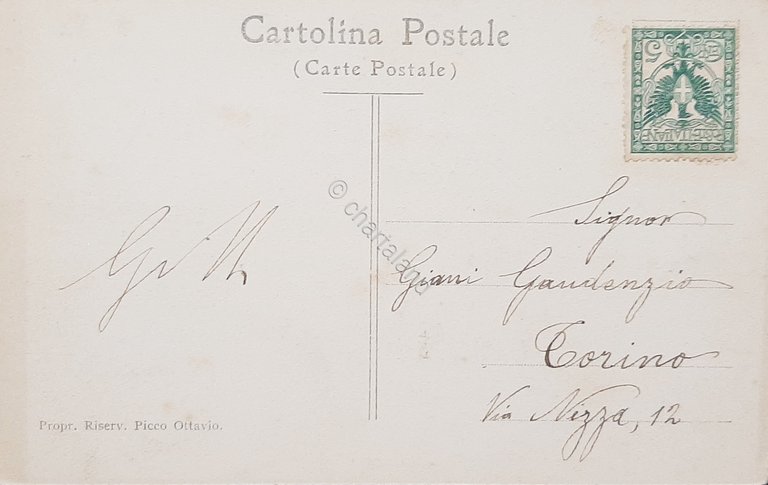 Cartolina Postale
(Carte Postale)
5
POSTE ITALIANE
Signor
Giani Gaudenzio
Torino
Via Nizza, 12
Propr. Riserv. Picco Ottavio.
© chartaland